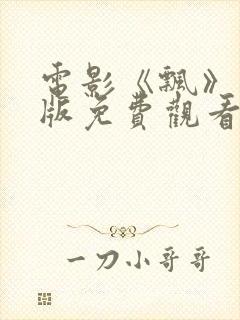 電影《飄》
版免費觀看
一刀小哥哥